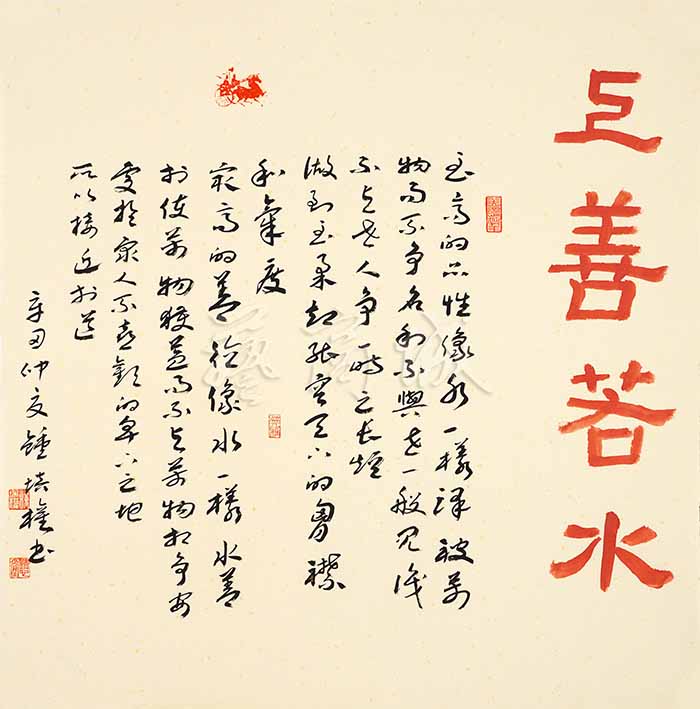 上善若水
至高的品性像水一樣澤被萬
物而不争名利不與世一般見識
不与世人争一時之長短
做到至柔却能容天下的胸襟
和氣度
最高的善德像水一樣水善
於使萬物獲益而不与萬物相争安
處於衆人不喜歡的卑下之地
所以接近於道
辛丑仲夏鍾培權书